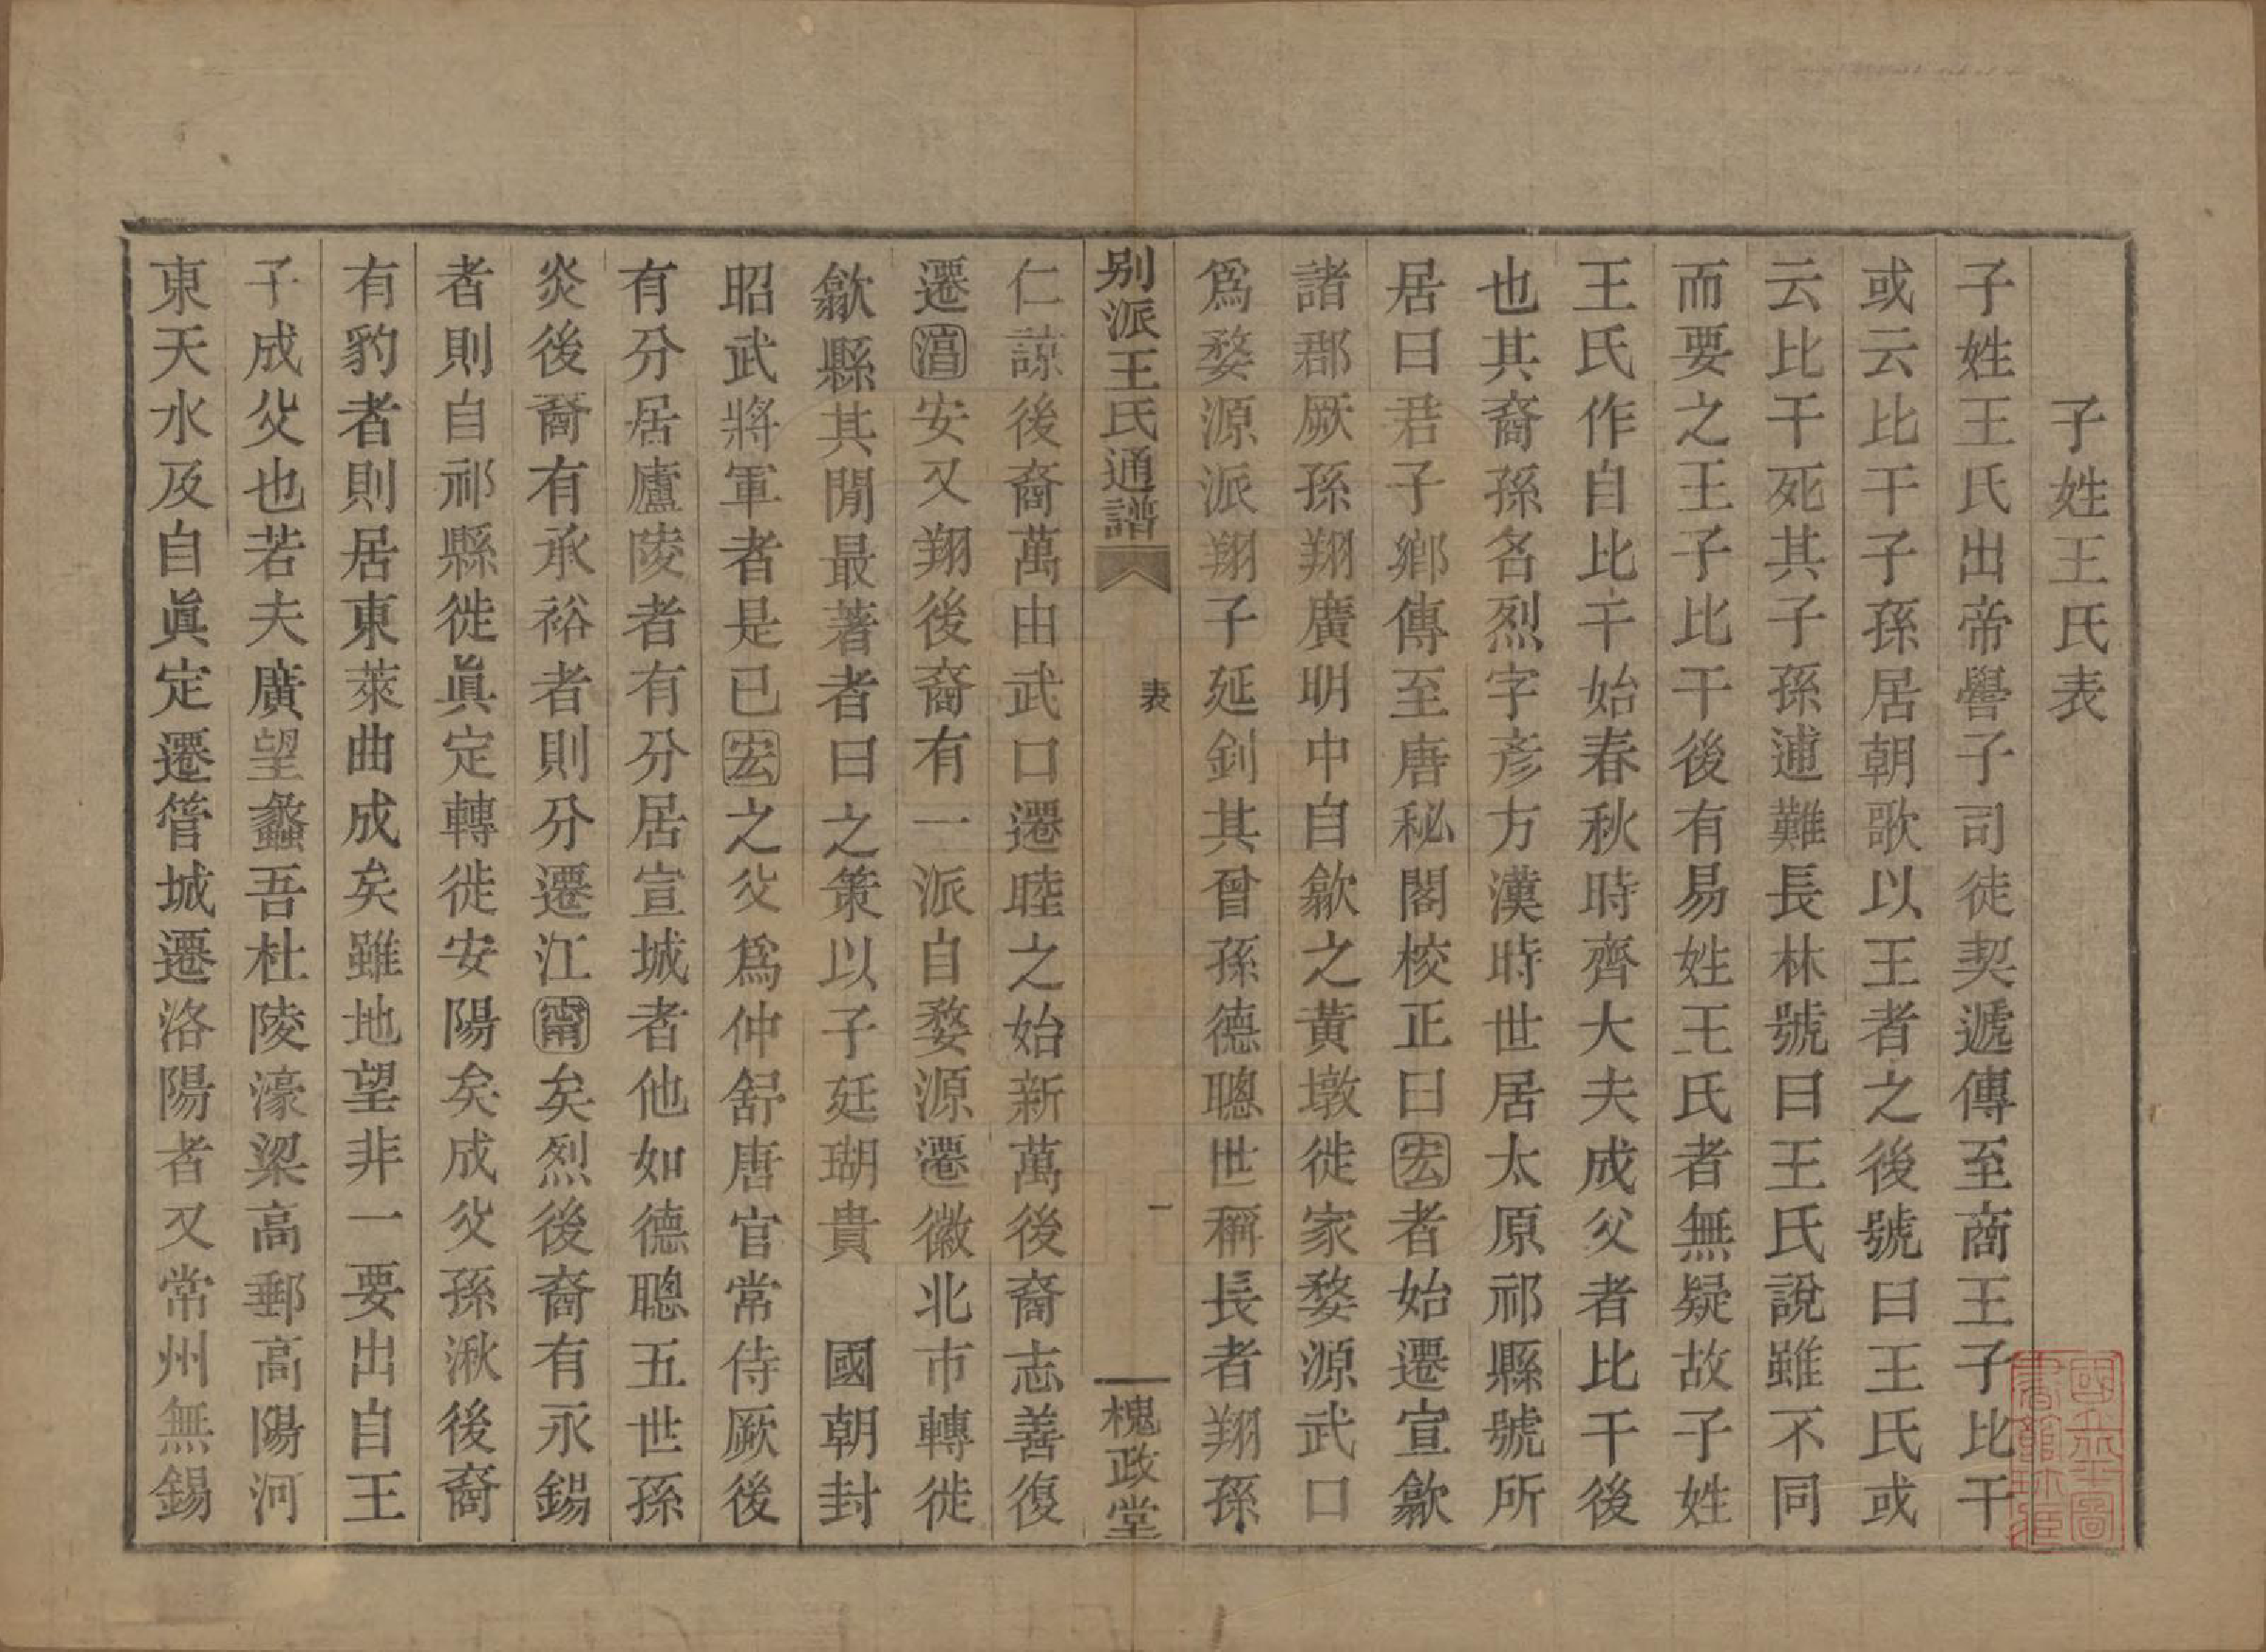 子姓王氏表
子姓王氏出帝嚳子司徒契遞傳至商王子比干
或云比干子孫居朝歌以王者之後號曰王氏或
云比干死其子孫逋難長林號曰王氏說雖不同
而要之王子比干後有易姓王氏者無疑故子姓
王氏作自比干始春秋時齊大夫成父者比干後
也其裔孫名烈字彥方漢時世居太原祁縣號所
居曰君子鄉傳至唐秘閣校正曰宏者始遷宣歙
諸郡厥孫翔廣明中自歙之黃墩徙家婺源武口
爲婺源派翔子延釗其曾孫德聰世稱長者翔孫
別派王氏通譜
表
一
槐政堂
仁諒後裔萬由武口遷睦之始新萬後裔志善復
遷淯安又翔後裔有一派自婺源遷徽北市轉徙
歙縣其閒最著者曰之策以子廷瑚貴 國朝封
昭武將軍者是已宏之父爲仲舒唐官常侍厥後
有分居廬陵者有分居宣城者他如德聰五世孫
炎後裔有承裕者則分遷江甯矣烈後裔有永錫
者則自祁縣徙眞定轉徙安陽矣成父孫湫後裔
有豹者則居東萊曲成矣雖地望非一要出自王
子成父也若夫廣望蠡吾杜陵濠梁高郵高陽河
東天水及自眞定遷管城遷洛陽者又常州無錫
國立北平圖書館珍藏